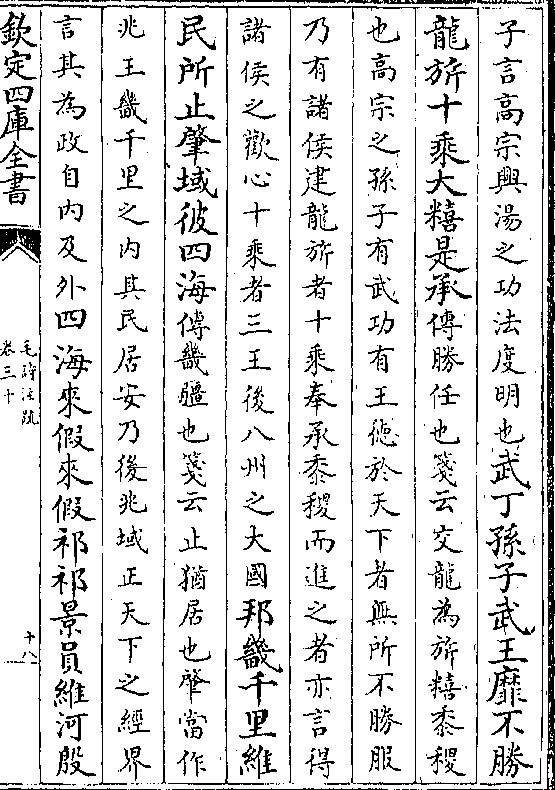 子言高宗興湯之功法度明也武丁孫子武王靡不勝
龍旂十乘大糦是承傳勝任也箋云交龍為旂糦黍稷
也高宗之孫子有武功有王德於天下者無所不勝服
乃有諸侯建龍旂者十乘奉承黍稷而進之者亦言得
諸侯之歡心十乘者三王後八州之大國邦畿千里維
民所止肇域彼四海傳畿疆也箋云止猶居也肇當作
兆王畿千里之內其民居安乃後兆域正天下之經界
言其為政自內及外四海來假來假祁祁景員維河殷
欽定四庫全書
毛詩注疏
卷三十
十八